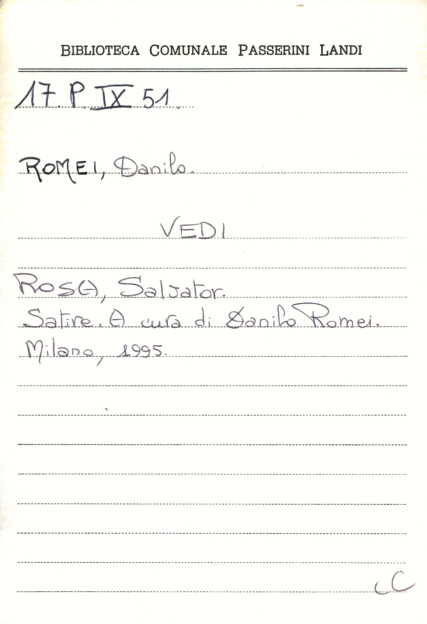 BIBLIOTECA COMUNALE PASSERINI LANDI
17. P. IX 51.
ROMEI, Danilo.
VEDI
ROSA, Salvator.
Satire. A cura di Danilo Romei.
Milano, 1995.
CC